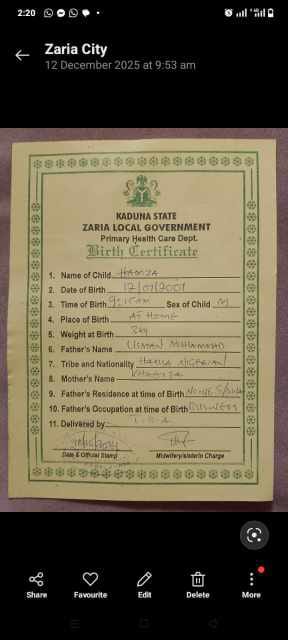 2:20
Zaria City
12 December 2025 at 9:53 am
KADUNA STATE
ZARIA LOCAL GOVERNMENT
Primary Health Care Dept.
Birth Certificate
1. Name of Child HAMZA
2. Date of Birth
3. Time of Birth Sex of Child M
4. Place of Birth AT HOME
5. Weight at Birth
6. Father's Name USMAN MUHAMMAD
7. Tribe and Nationality HAUSA NIGERIAN
8. Mother's Name
9. Father's Residence at time of Birth
10. Father's Occupation at time of Birth BUSINESS
11. Delivered by
Date & Official Stamp Midwifery/sister/in Charge
Share Favourite Edit Delete More